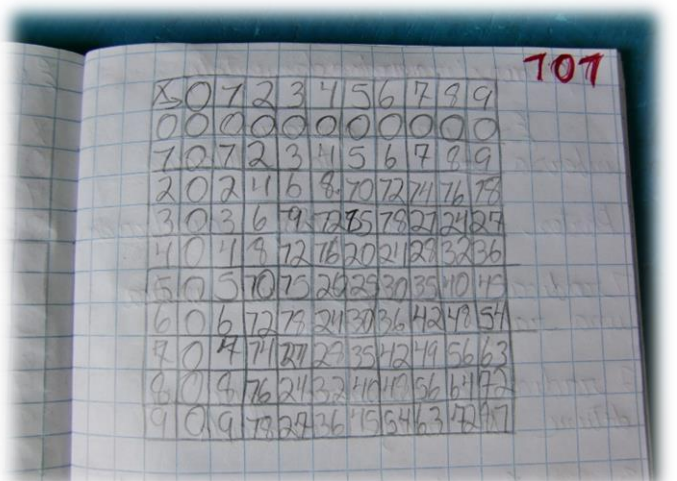 101
X 0 1 2 3 4 5 6 7 8 9
0 0 0 0 0 0 0 0 0 0 0
1 0 1 2 3 4 5 6 7 8 9
2 0 2 4 6 8 10 12 14 16 18
3 0 3 6 9 12 15 18 21 24 27
4 0 4 8 12 16 20 24 28 32 36
5 0 5 10 15 20 25 30 35 40 45
6 0 6 12 18 24 30 36 42 48 54
7 0 7 14 21 28 35 42 49 56 63
8 0 8 16 24 32 40 48 56 64 72
9 0 9 18 27 36 45 54 63 72